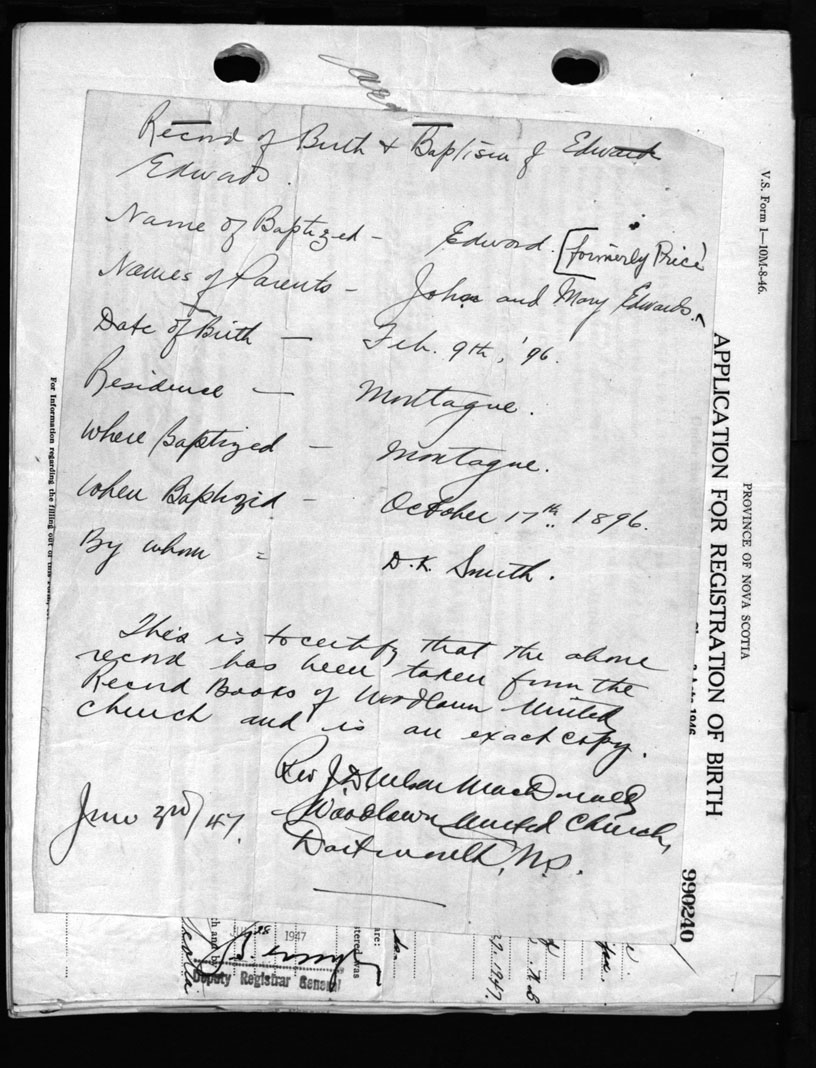 Record of Birth & Baptism of Edward
Edwards.
Name of Baptized - Edward. [formerly Price]
Names of Parents - John and Mary Edwards.
Date of Birth - Feb. 9th, '96.
Residence - Montague.
Where Baptized - Montague.
When Baptized - October 17th. 1896.
By whom = D.K. Smith.
This is to certify that the above
record has been taken from the
Record Books of Woodlawn United
Church and is an exact copy.
Rev J.D. Nelson MacDonald
Woodlawn United Church,
Dartmouth, N.S.
June 3rd/47.
V.S. Form 1—10M-8-46.
PROVINCE OF NOVA SCOTIA
APPLICATION FOR REGISTRATION OF BIRTH
990240
For Information regarding the filling out of this
1946
1947
Deputy Registrar General
are:
tered was
ch and
1947.